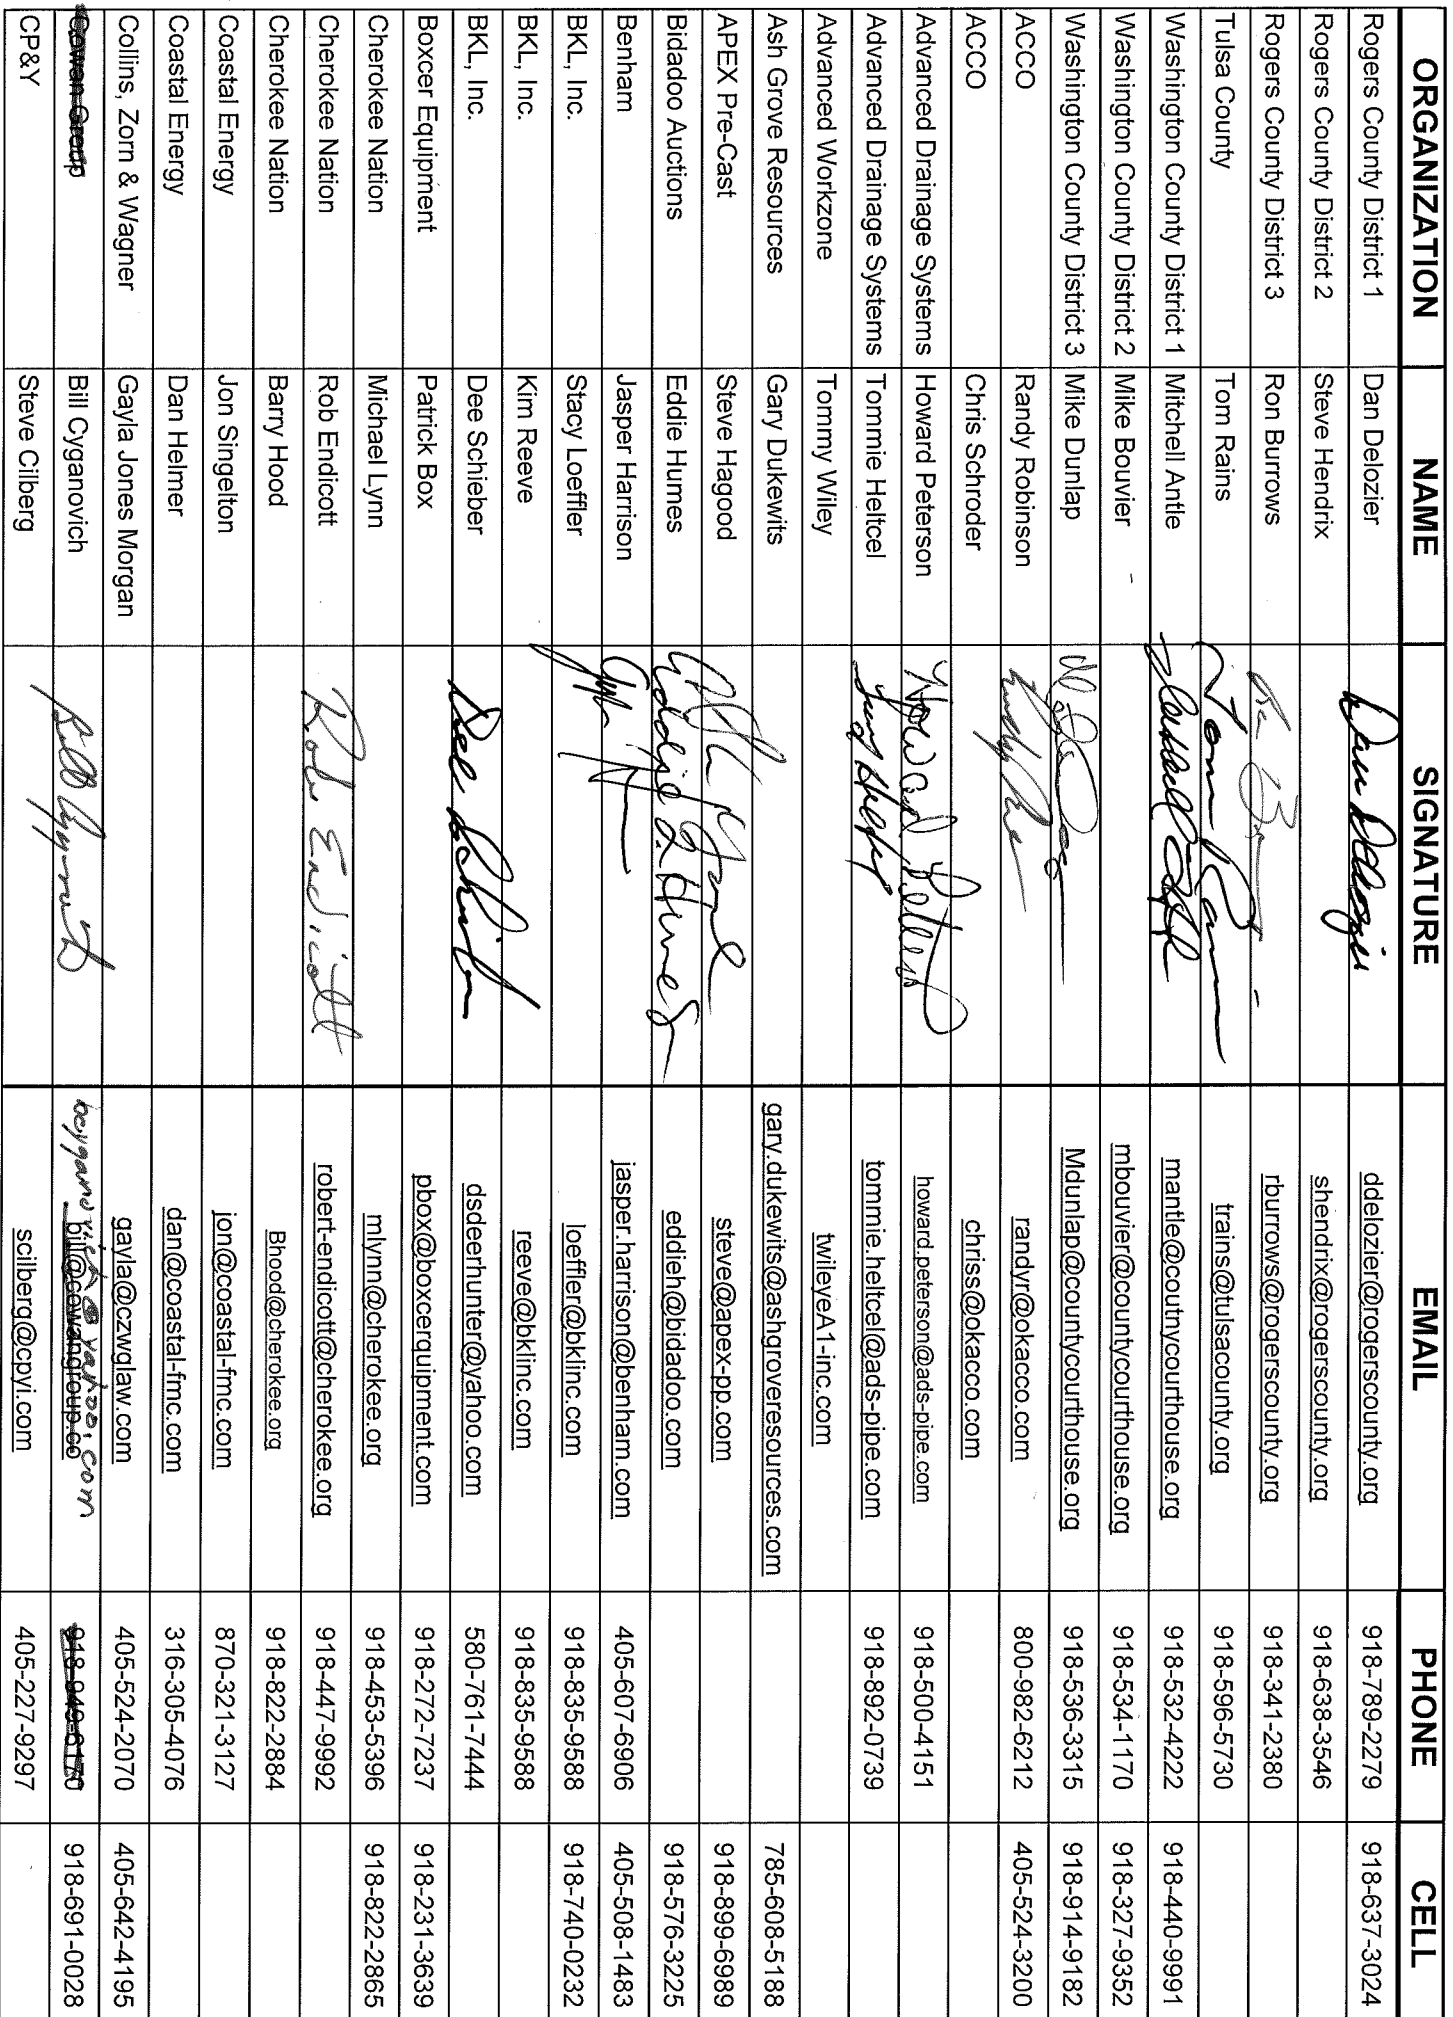 ORGANIZATION NAME SIGNATURE EMAIL PHONE CELL
Rogers County District 1 Dan Delozier Dan Delozier ddelozier@rogerscounty.org 918-789-2279 918-637-3024
Rogers County District 2 Steve Hendrix shendrix@rogerscounty.org 918-638-3546
Rogers County District 3 Ron Burrows rburrows@rogerscounty.org 918-341-2380
Tulsa County Tom Rains Tom Rains trains@tulsacounty.org 918-596-5730
Washington County District 1 Mitchell Antle Mitchell Antle mantle@coutnycourthouse.org 918-532-4222 918-440-9991
Washington County District 2 Mike Bouvier mbouvier@countycourthouse.org 918-534-1170 918-327-9352
Washington County District 3 Mike Dunlap Mdunlap@countycourthouse.org 918-536-3315 918-914-9182
ACCO Randy Robinson randyr@okacco.com 800-982-6212 405-524-3200
ACCO Chris Schroder chriss@okacco.com
Advanced Drainage Systems Howard Peterson Howard Peterson howard.peterson@ads-pipe.com 918-500-4151
Advanced Drainage Systems Tommie Heltcel tommie.heltcel@ads-pipe.com 918-892-0739
Advanced Workzone Tommy Wiley twileyeA1-inc.com
Ash Grove Resources Gary Dukewits gary.dukewits@ashgroveresources.com 785-608-5188
APEX Pre-Cast Steve Hagood steve@apex-pp.com 918-899-6989
Bidadoo Auctions Eddie Humes Eddie L Humes eddieh@bidadoo.com 918-576-3225
Benham Jasper Harrison jasper.harrison@benham.com 405-607-6906 405-508-1483
BKL, Inc. Stacy Loeffler loeffler@bklinc.com 918-835-9588 918-740-0232
BKL, Inc. Kim Reeve reeve@bklinc.com 918-835-9588
BKL, Inc. Dee Schieber Dee Schieber dsdeerhunter@yahoo.com 580-761-7444
Boxcer Equipment Patrick Box pbox@boxcerquipment.com 918-272-7237 918-231-3639
Cherokee Nation Michael Lynn mlynn@cherokee.org 918-453-5396 918-822-2865
Cherokee Nation Rob Endicott Rob Endicott robert-endicott@cherokee.org 918-447-9992
Cherokee Nation Barry Hood Bhood@cherokee.org 918-822-2884
Coastal Energy Jon Singelton jon@coastal-fmc.com 870-321-3127
Coastal Energy Dan Helmer dan@coastal-fmc.com 316-305-4076
Collins, Zorn & Wagner Gayla Jones Morgan gayla@czwglaw.com 405-524-2070 405-642-4195
Cowan Group Bill Cyganovich Bill Cyganovich bcyganovich@yahoo.com bill@cowangroup.co 918-949-6170 918-691-0028
CP&Y Steve Cilberg scilberg@cpyi.com 405-227-9297